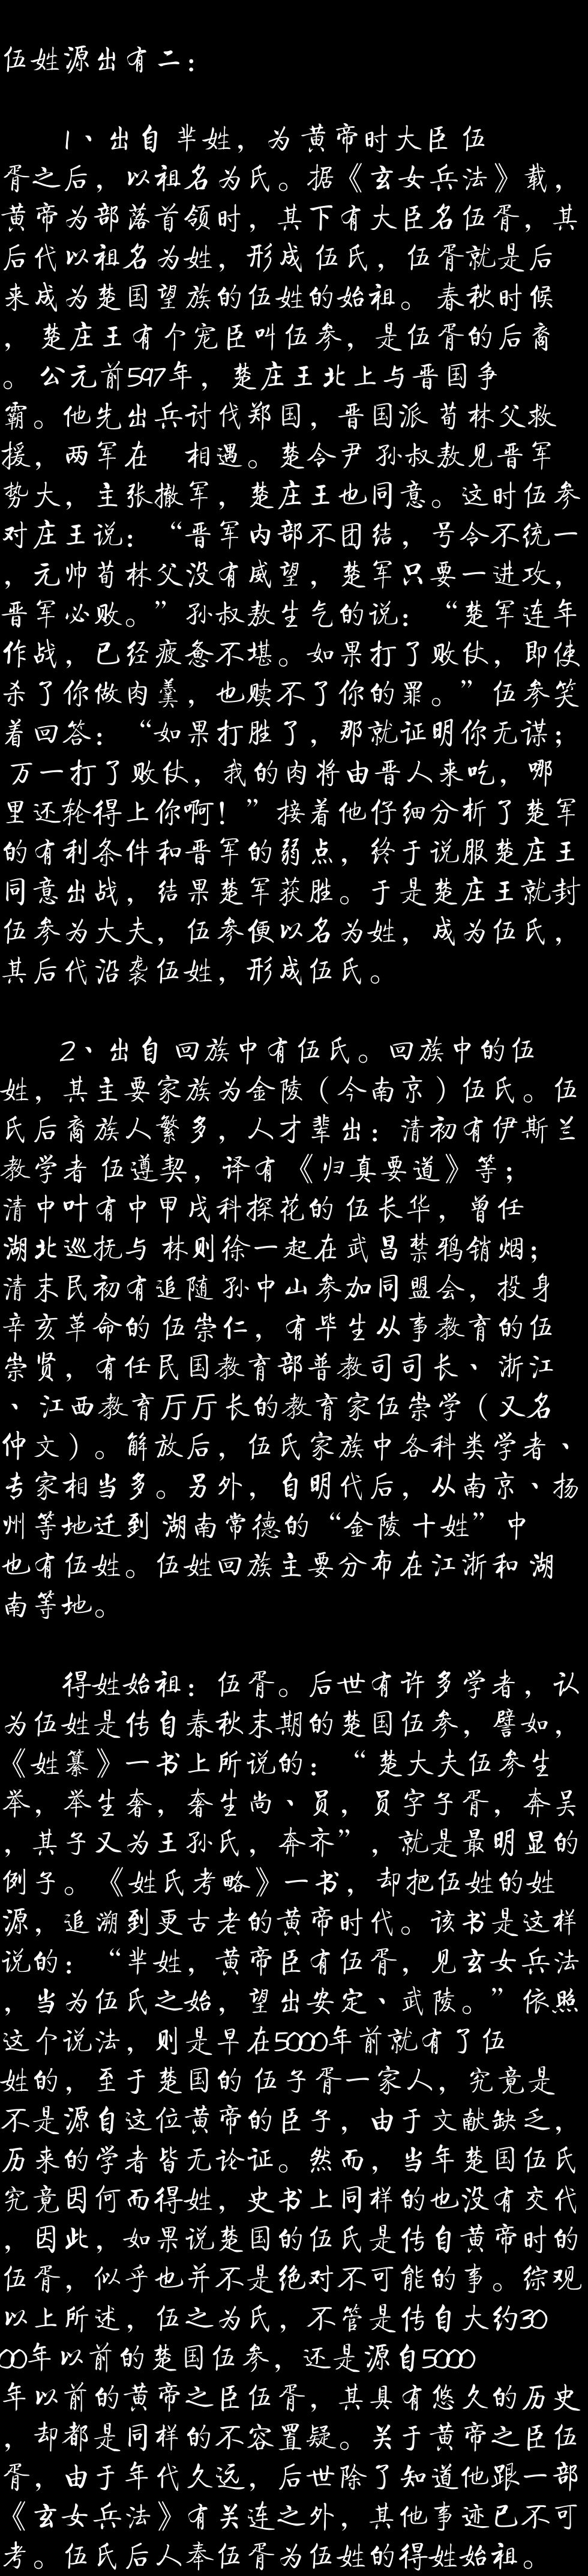 伍姓源出有二：
1、出自 芈姓，为 黄帝时大臣 伍
胥之后，以祖名为氏。据《玄女兵法》载，
黄帝为部落首领时，其下有大臣名伍胥，其
后代以祖名为姓，形成 伍氏，伍胥就是后
来成为楚国望族的伍姓的始祖。 春秋时候
， 楚庄王有个宠臣叫伍参，是伍胥的后裔
。 公元前597年，楚庄王北上与晋国争
霸。他先出兵讨伐郑国，晋国派 荀林父救
援，两军在　相遇。楚令尹 孙叔敖见晋军
势大，主张撤军，楚庄王也同意。这时伍参
对庄王说：“晋军内部不团结，号令不统一
，元帅荀林父没有威望，楚军只要一进攻，
晋军必败。”孙叔敖生气的说：“楚军连年
作战，已经疲惫不堪。如果打了败仗，即使
杀了你做肉羹，也赎不了你的罪。”伍参笑
着回答：“如果打胜了，那就证明你无谋；
万一打了败仗，我的肉将由晋人来吃，哪
里还轮得上你啊！”接着他仔细分析了楚军
的有利条件和晋军的弱点，终于说服楚庄王
同意出战，结果楚军获胜。于是楚庄王就封
伍参为大夫，伍参便以名为姓，成为伍氏，
其后代沿袭伍姓，形成伍氏。
2、出自 回族中有伍氏。回族中的伍
姓，其主要家族为金陵（今南京）伍氏。伍
氏后裔族人繁多，人才辈出：清初有伊斯兰
教学者 伍遵契，译有《归真要道》等；
清中叶有中甲戌科探花的 伍长华，曾任
湖北巡抚与 林则徐一起在武昌禁鸦销烟；
清末民初有追随 孙中山参加同盟会，投身
辛亥革命的 伍崇仁，有毕生从事教育的伍
崇贤，有任民国教育部普教司司长、 浙江
、 江西教育厅厅长的教育家伍崇学（又名
仲文）。解放后，伍氏家族中各科类学者、
专家相当多。另外，自明代后，从南京、扬
州等地迁到 湖南常德的“金陵十姓”中
也有伍姓。伍姓回族主要分布在江浙和 湖
南等地。
得姓始祖：伍胥。后世有许多学者，认
为伍姓是传自春秋末期的楚国伍参，譬如，
《姓纂》一书上所说的：“ 楚大夫伍参生
举，举生奢，奢生尚、员，员字子胥，奔吴
，其子又为王孙氏，奔齐”，就是最明显的
例子。《姓氏考略》一书，却把伍姓的姓
源，追溯到更古老的黄帝时代。该书是这样
说的：“芈姓，黄帝臣有伍胥，见玄女兵法
，当为伍氏之始，望出安定、武陵。”依照
这个说法，则是早在5000年前就有了伍
姓的，至于楚国的 伍子胥一家人，究竟是
不是源自这位黄帝的臣子，由于文献缺乏，
历来的学者皆无论证。然而，当年楚国伍氏
究竟因何而得姓，史书上同样的也没有交代
，因此，如果说楚国的伍氏是传自黄帝时的
伍胥，似乎也并不是绝对不可能的事。综观
以上所述，伍之为氏，不管是传自大约30
00年以前的楚国伍参，还是源自5000
年以前的黄帝之臣伍胥，其具有悠久的历史
，却都是同样的不容置疑。关于黄帝之臣伍
胥，由于年代久远，后世除了知道他跟一部
《玄女兵法》有关连之外，其他事迹已不可
考。伍氏后人奉伍胥为伍姓的得姓始祖。